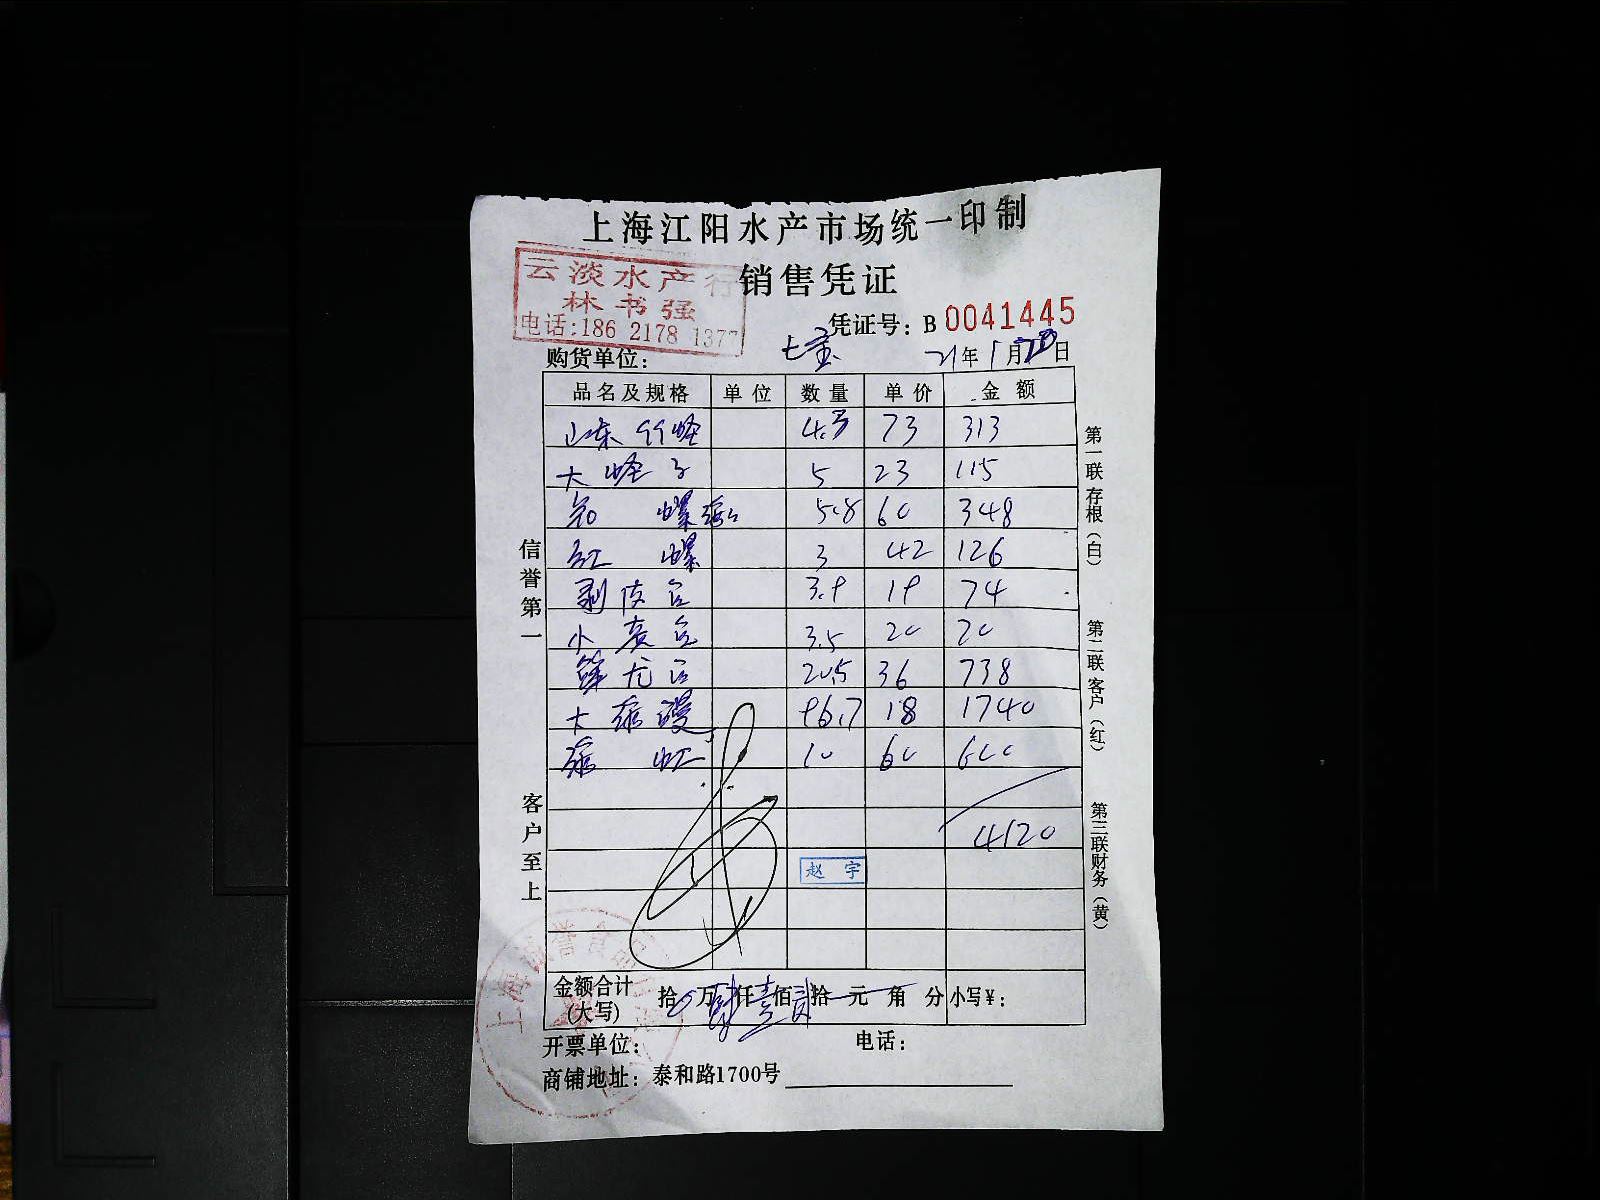 上海江阳水产市场统一印制
云淡水产行
销售凭证
林书强
电话:186 2178 1377
凭证号: B 0041445
购货单位: 七宝 21年1月 日
品名及规格 单位 数量 单价 金额
山东竹蛏 73 313
大蛏子 5 23 115
螺 5.8 60 348
红螺 3 42 126
剥皮 3.9 19 74
小 3.5 20 70
20.5 36 738
大 96.7 18 1740
10 60 600
4120
赵宇
金额合计(大写) 拾 万 肆仟壹佰贰拾元 角 分 小写¥:
开票单位: 电话:
商铺地址: 泰和路1700号
信誉第一
客户至上
第一联存根(白)
第二联客户(红)
第三联财务(黄)